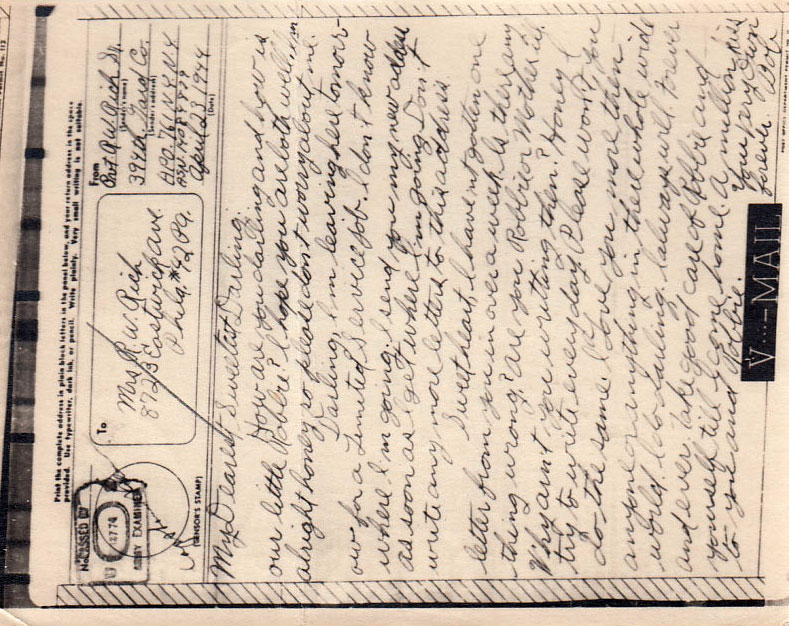 Print the complete address in plain block letters in the panel below, and your return address in the space
provided. Use typewriter, dark ink, or pencil. Write plainly. Very small writing is not suitable.
No.
PASSED BY
U
12774
ARMY EXAMINER
(CENSOR'S STAMP)
To
Mrs R W. Rich
8723 Eastwick ave
Phila. #42 Pa.
From
Pvt R W Rich Jr.
(Sender's name)
394th Gard Co.
(Sender's address)
A.P.O. 761 N.Y. N.Y.
April 23 1944
My Dearest Sweetest Darling:
How are you darling and how is
our little Robbie? I hope you are both well. I'm
alright honey so please don't worry about me.
Darling, I'm leaving here tomorr-
ow for a Limited Service job. I don't know
where I'm going. I send you my new address
as soon as I get where I'm going. Don't
write any more letters to this address
Sweetheart, I haven't gotten one
letter from you in over a week. Is there any
thing wrong? are you Robbie or Mother ill.
Why ain't you writting then? Honey I
try to write every day. Please won't you
do the same. I Love you more then
anyone or anything in there whole wide
world. I do darling. I always will. Forever
and ever. take good care of Robbie and
yourself till I come home. A million kiss
to you and Robbie.
Your very Own
forever
Bob
V···—MAIL